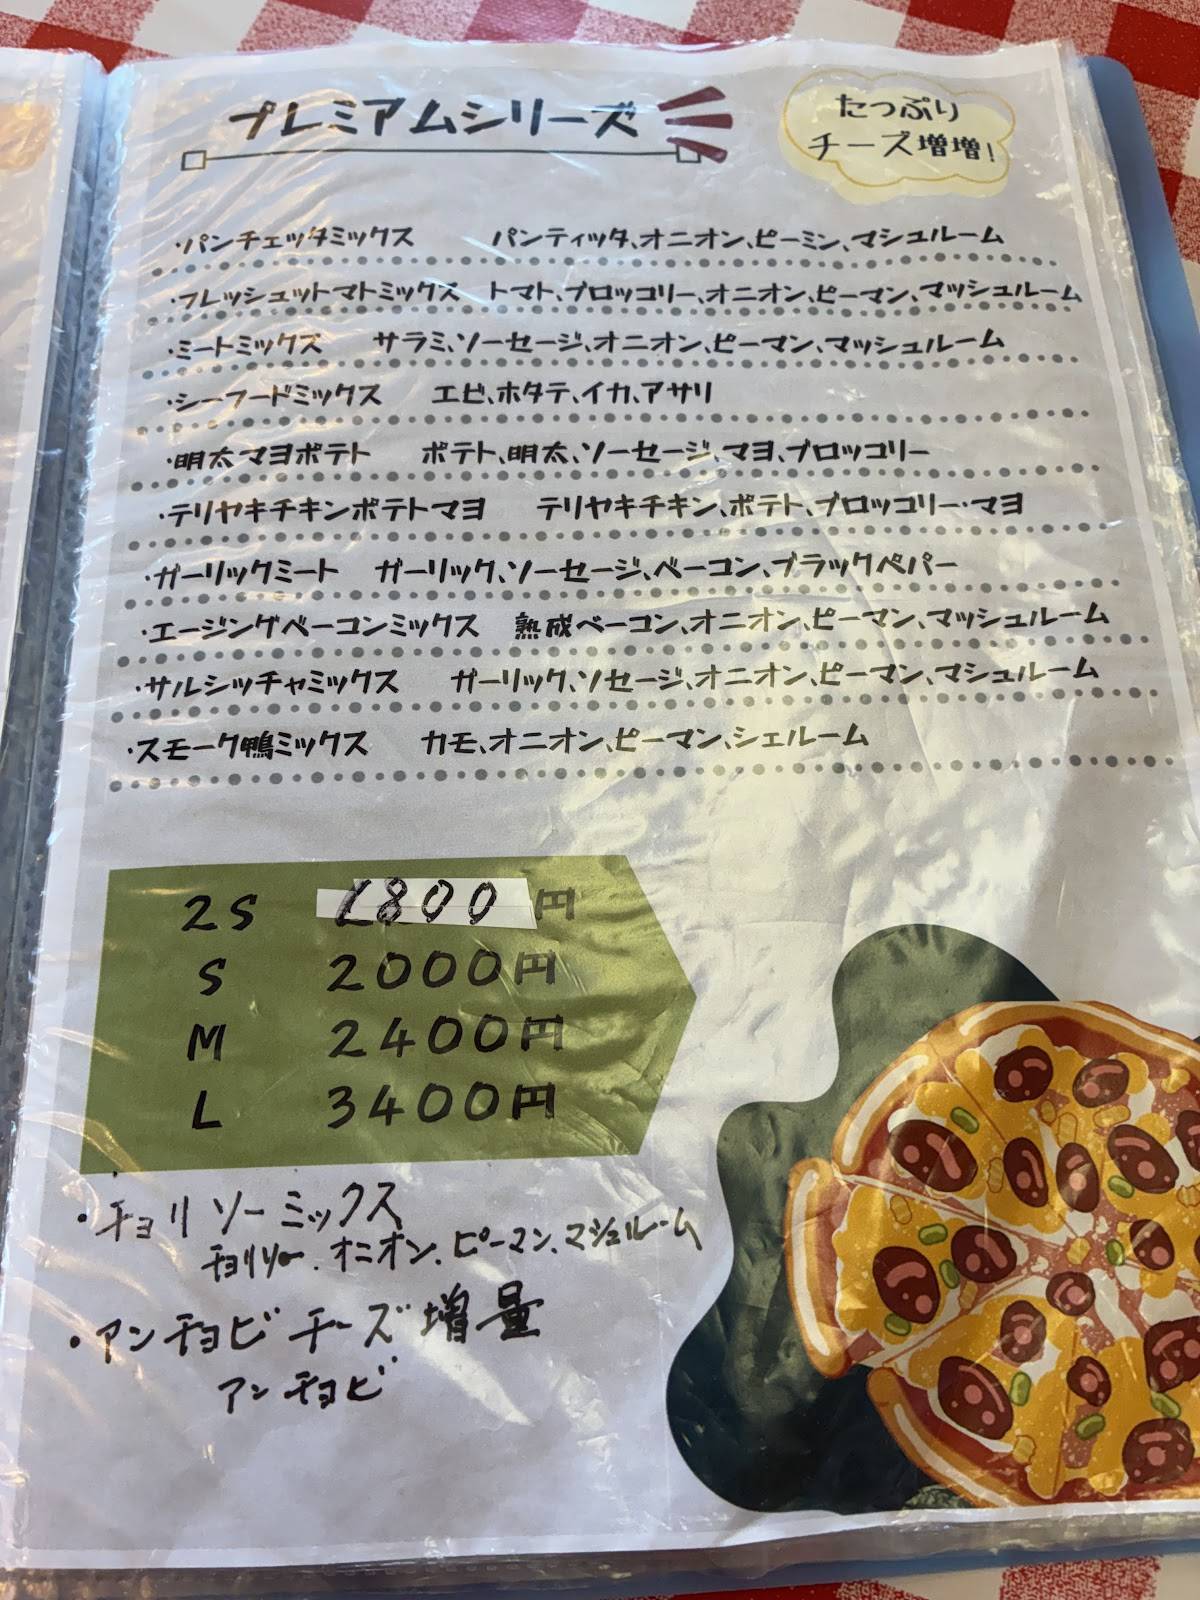 プレミアムシリーズ
たっぷり
チーズ増増!
・パンチェッタミックス パンティッタ、オニオン、ピーミン、マシュルーム
・フレッシュットマトミックス トマト、ブロッコリー、オニオン、ピーマン、マッシュルーム
・ミートミックズ サラミ、ソーセージ、オニオン、ピーマン、マッシュルーム
・シーフードミックス エビ、ホタテ、イカ、アサリ
・明太マヨポテト ポテト、明太、ソーセージ、マヨ、ブロッコリー
・テリヤキチキンポテトマヨ テリヤキチキン、ポテト、ブロッコリー・マヨ
・ガーリックミート ガーリック、ソーセージ、ベーコン、ブラックペパー
・エージングベーコンミックス 熟成ベーコン、オニオン、ピーマン、マッシュルーム
・サルシッチャミックス ガーリック、ソセージ、オニオン、ピーマン、マシュルーム
・スモーク鴨ミックス カモ、オニオン、ピーマン、シェルーム
2S 1800円
S 2000円
M 2400円
L 3400円
・チョリソーミックス
チョリソー、オニオン、ピーマン、マシュルーム
・アンチョビチーズ増量
アンチョビ